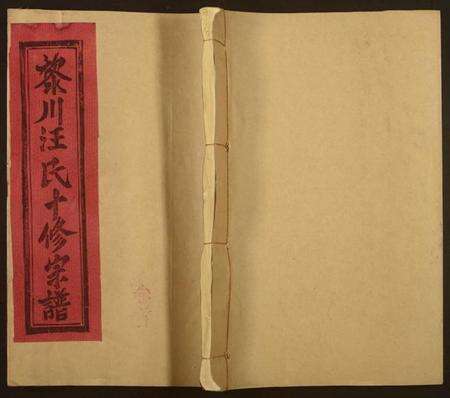 蔾川汪氏十修宗譜